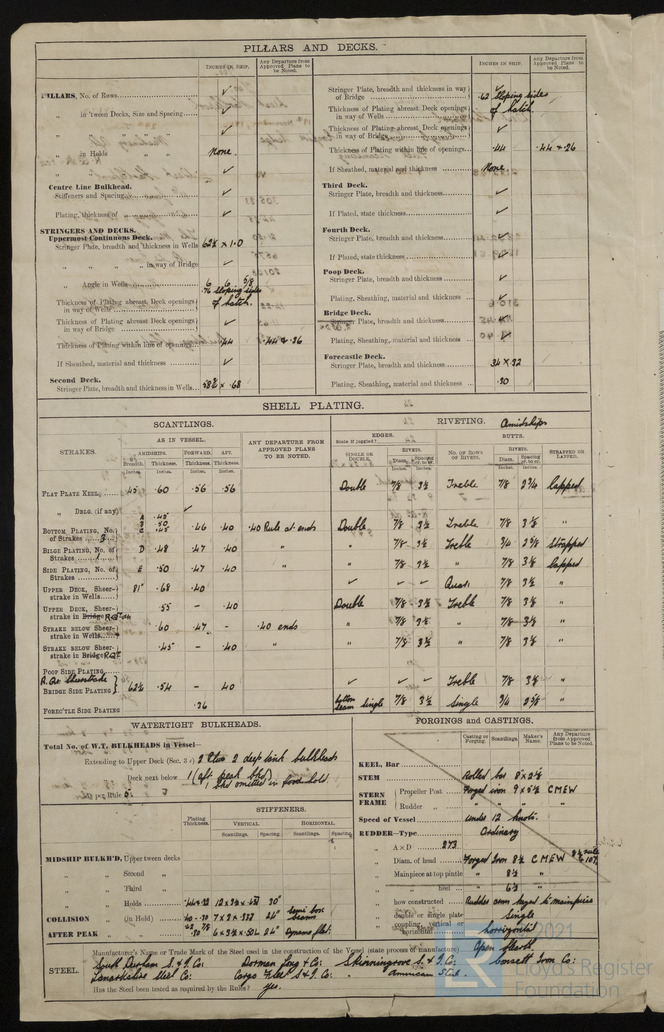 PILLARS AND DECKS.
INCHES IN SHIP.
Any Departure from Approved Plans to be Noted.
PILLARS, No. of Rows ✓
„ in 'tween Decks, Size and Spacing ✓
„ „ „ ✓
„ in Holds „ None
„ „ „ ✓
Centre Line Bulkhead.
Stiffeners and Spacing ✓
Plating, thickness of ✓
STRINGERS AND DECKS.
Uppermost Continuous Deck.
Stringer Plate, breadth and thickness in Wells 62½ x 1.0
„ „ „ in way of Bridge ✓
„ Angle in Wells 6 6 5/8
Thickness of Plating abreast Deck openings in way of Wells .76 sloping sides of hatch.
Thickness of Plating abreast Deck openings in way of Bridge ✓
Thickness of Plating within line of openings .44 .44 & .26
If Sheathed, material and thickness ✓
Second Deck.
Stringer Plate, breadth and thickness in Wells 58½ x .68
INCHES IN SHIP.
Any Departure from Approved Plans to be Noted.
Stringer Plate, breadth and thickness in way of Bridge
Thickness of Plating abreast Deck openings in way of Wells .62 sloping sides of hatch
Thickness of Plating abreast Deck openings in way of Bridge ✓
Thickness of Plating within line of openings .44 .44 & 26
If Sheathed, material and thickness None
Third Deck.
Stringer Plate, breadth and thickness ✓
If Plated, state thickness ✓
Fourth Deck.
Stringer Plate, breadth and thickness ✓
If Plated, state thickness ✓
Poop Deck.
Stringer Plate, breadth and thickness ✓
Plating, Sheathing, material and thickness ✓
Bridge Deck.
Stringer Plate, breadth and thickness ✓
Plating, Sheathing, material and thickness ✓
Forecastle Deck.
Stringer Plate, breadth and thickness 34 x 32
Plating, Sheathing, material and thickness .30
SHELL PLATING.
SCANTLINGS. RIVETING. Amidships
STRAKES. AS IN VESSEL. ANY DEPARTURE FROM APPROVED PLANS TO BE NOTED. EDGES. BUTTS.
AMIDSHIPS. FORWARD. AFT. State if joggled? SINGLE OR DOUBLE. RIVETS. No. OF ROWS OF RIVETS. RIVETS. STRAPPED OR LAPPED.
Breadth. Thickness. Thickness. Thickness. Diam. Spacing cr. to cr. Diam. Spacing cr. to cr.
Inches. Inches. Inches. Inches. Inches. Inches. Inches. Inches.
FLAT PLATE KEEL 45 .60 .56 .56 Double 7/8 3½ Treble 7/8 2¾ lapped
„ DBLG. (if any) ✓
BOTTOM PLATING, No. of Strakes 3 A .45 B .50 C .45 .46 40 .40 Rule at ends Double 7/8 3½ Treble 7/8 3½ „
BILGE PLATING, No. of Strakes 1 D .48 .47 40 „ „ 7/8 3½ Treble 3/4 2 5/8 Strapped
SIDE PLATING, No. of Strakes E .50 .47 40 „ „ 7/8 3½ „ 7/8 3½ lapped
UPPER DECK, Sheerstrake in Wells 81" .68 .40 ✓ ✓ ✓ Quad. 7/8 3½ „
UPPER DECK, Sheerstrake in Bridge .55 – .40 Double 7/8 3½ Treble 7/8 3½ „
STRAKE BELOW Sheerstrake in Wells .60 .47 – .40 ends „ 7/8 3½ „ 7/8 3½ „
STRAKE BELOW Sheerstrake in Bridge .45 – .40 „ „ 7/8 3½ „ 7/8 3½ „
POOP SIDE PLATING
R. Qr. Sheerstrake
BRIDGE SIDE PLATING 62½ .54 – 40 ✓ ✓ ✓ Treble 7/8 3½ „
FOREC'TLE SIDE PLATING .36 single 7/8 3½ Single 3/4 2 5/8 „
WATERTIGHT BULKHEADS.
Total No. of W.T. BULKHEADS in Vessel—
Extending to Upper Deck 2 deep tank bulkheads
Deck next below 1 (aft peak bhd)
1 bhd omitted in fore hold.
As per Rule 5
STIFFENERS.
Plating Thickness. VERTICAL HORIZONTAL
Scantlings. Spacing. Scantlings. Spacing.
MIDSHIP BULKH'D, Upper tween decks
„ Second „
„ Third „
„ Holds 30"
COLLISION „ (in Hold) 7 x 3 x 24" semi box beams
AFTER PEAK „ „ 6 x 3½ x 50L 24"
FORGINGS and CASTINGS.
Casting or Forging. Scantlings. Maker's Name. Any Departure from Approved Plans to be Noted.
KEEL, Bar
STEM Rolled bar 8 x 2½
STERN FRAME Propeller Post Forged iron 9 x 5½ CMEW
Rudder „ „ „ „
Speed of Vessel under 12 knots.
RUDDER—Type Ordinary
„ A x D 273
„ Diam. of head Forged Iron 8½ CMEW
„ Mainpiece at top pintle „ 8½ „
„ „ heel „ 6½ „
„ how constructed Rudder arm keyed to mainpiece
„ double or single plate Single
„ coupling, vertical or horizontal horizontal
STEEL. Manufacturer's Name or Trade Mark of the Steel used in the construction of the Vessel (state process of manufacture) Open Hearth
South Durham S. & I. Co: Dorman Long & Co: Skinningrove S. & I. Co: Consett Iron Co:
Lanarkshire Steel Co: Cargo Fleet S. & I. Co: American Steel.
Has the Steel been tested as required by the Rules? yes.
2021
LR
Lloyd's Register
Foundation